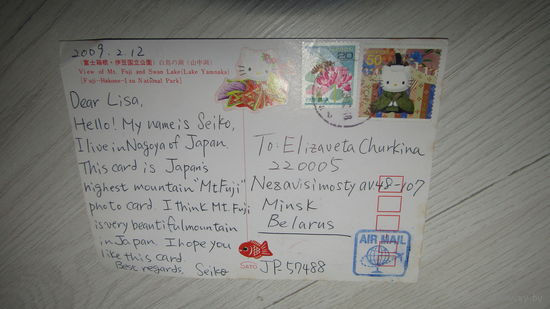 2009.2.12
(富士箱根・伊豆国立公園) 白鳥の湖 (山中湖)
View of Mt. Fuji and Swan Lake (Lake Yamnaka)
(Fuji-Hakone-Izu National Park)
Dear Lisa,
Hello! My name is Seiko,
I live in Nagoya of Japan.
This card is Japan's
highest mountain "Mt.Fuji"
photo card. I think Mt. Fuji
is very beautiful mountain
in Japan. I hope you
like this card.
Best regards, Seiko
20
50
To: Elizaveta Churkina
220005
Nezavisimosty av 48-107
Minsk
Belarus
AIR MAIL
SATO
JP.57488